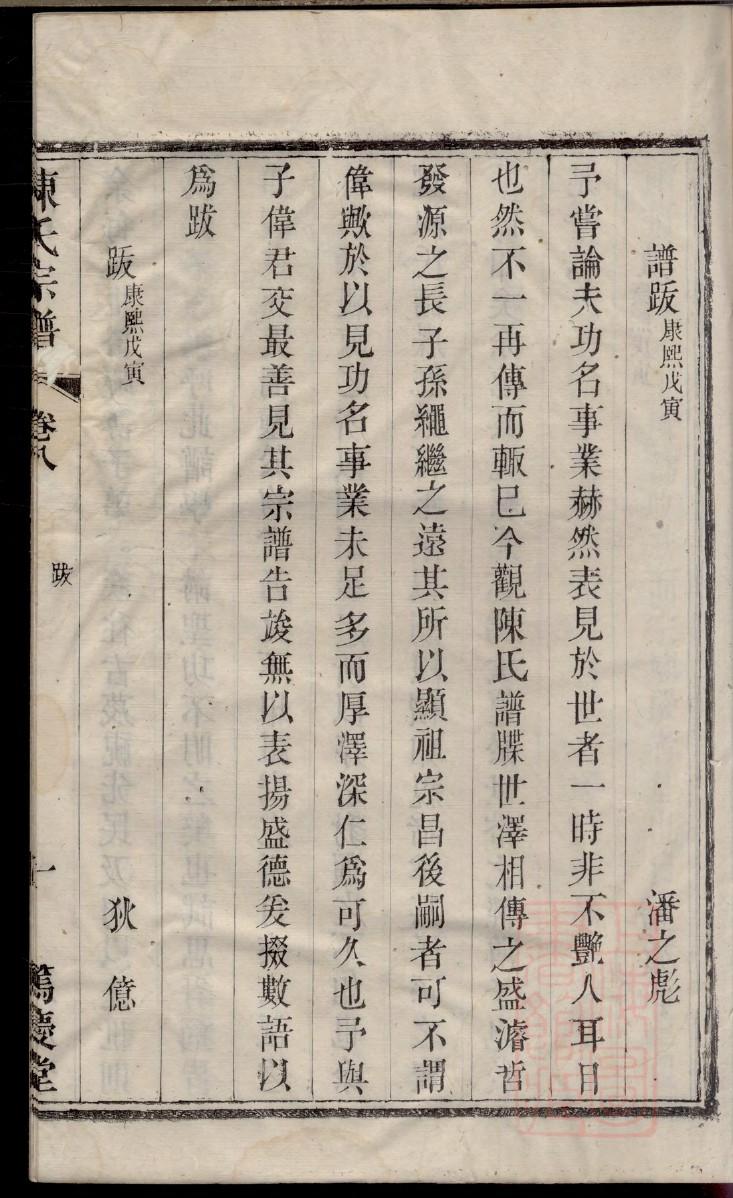 譜跋 康熙戊寅 潘之彪
予嘗論夫功名事業赫然表見於世者一時非不艷人耳目
也然不一再傳而輙已今觀陳氏譜牒世澤相傳之盛濬哲
發源之長子孫繩繼之遠其所以顯祖宗昌後嗣者可不謂
偉歟於以見功名事業未足多而厚澤深仁爲可久也予與
子偉君交最善見其宗譜告竣無以表揚盛德爰掇數語以
爲跋
跋 康熙戊寅 狄億
陳氏宗譜 卷八 跋 一 篤慶堂